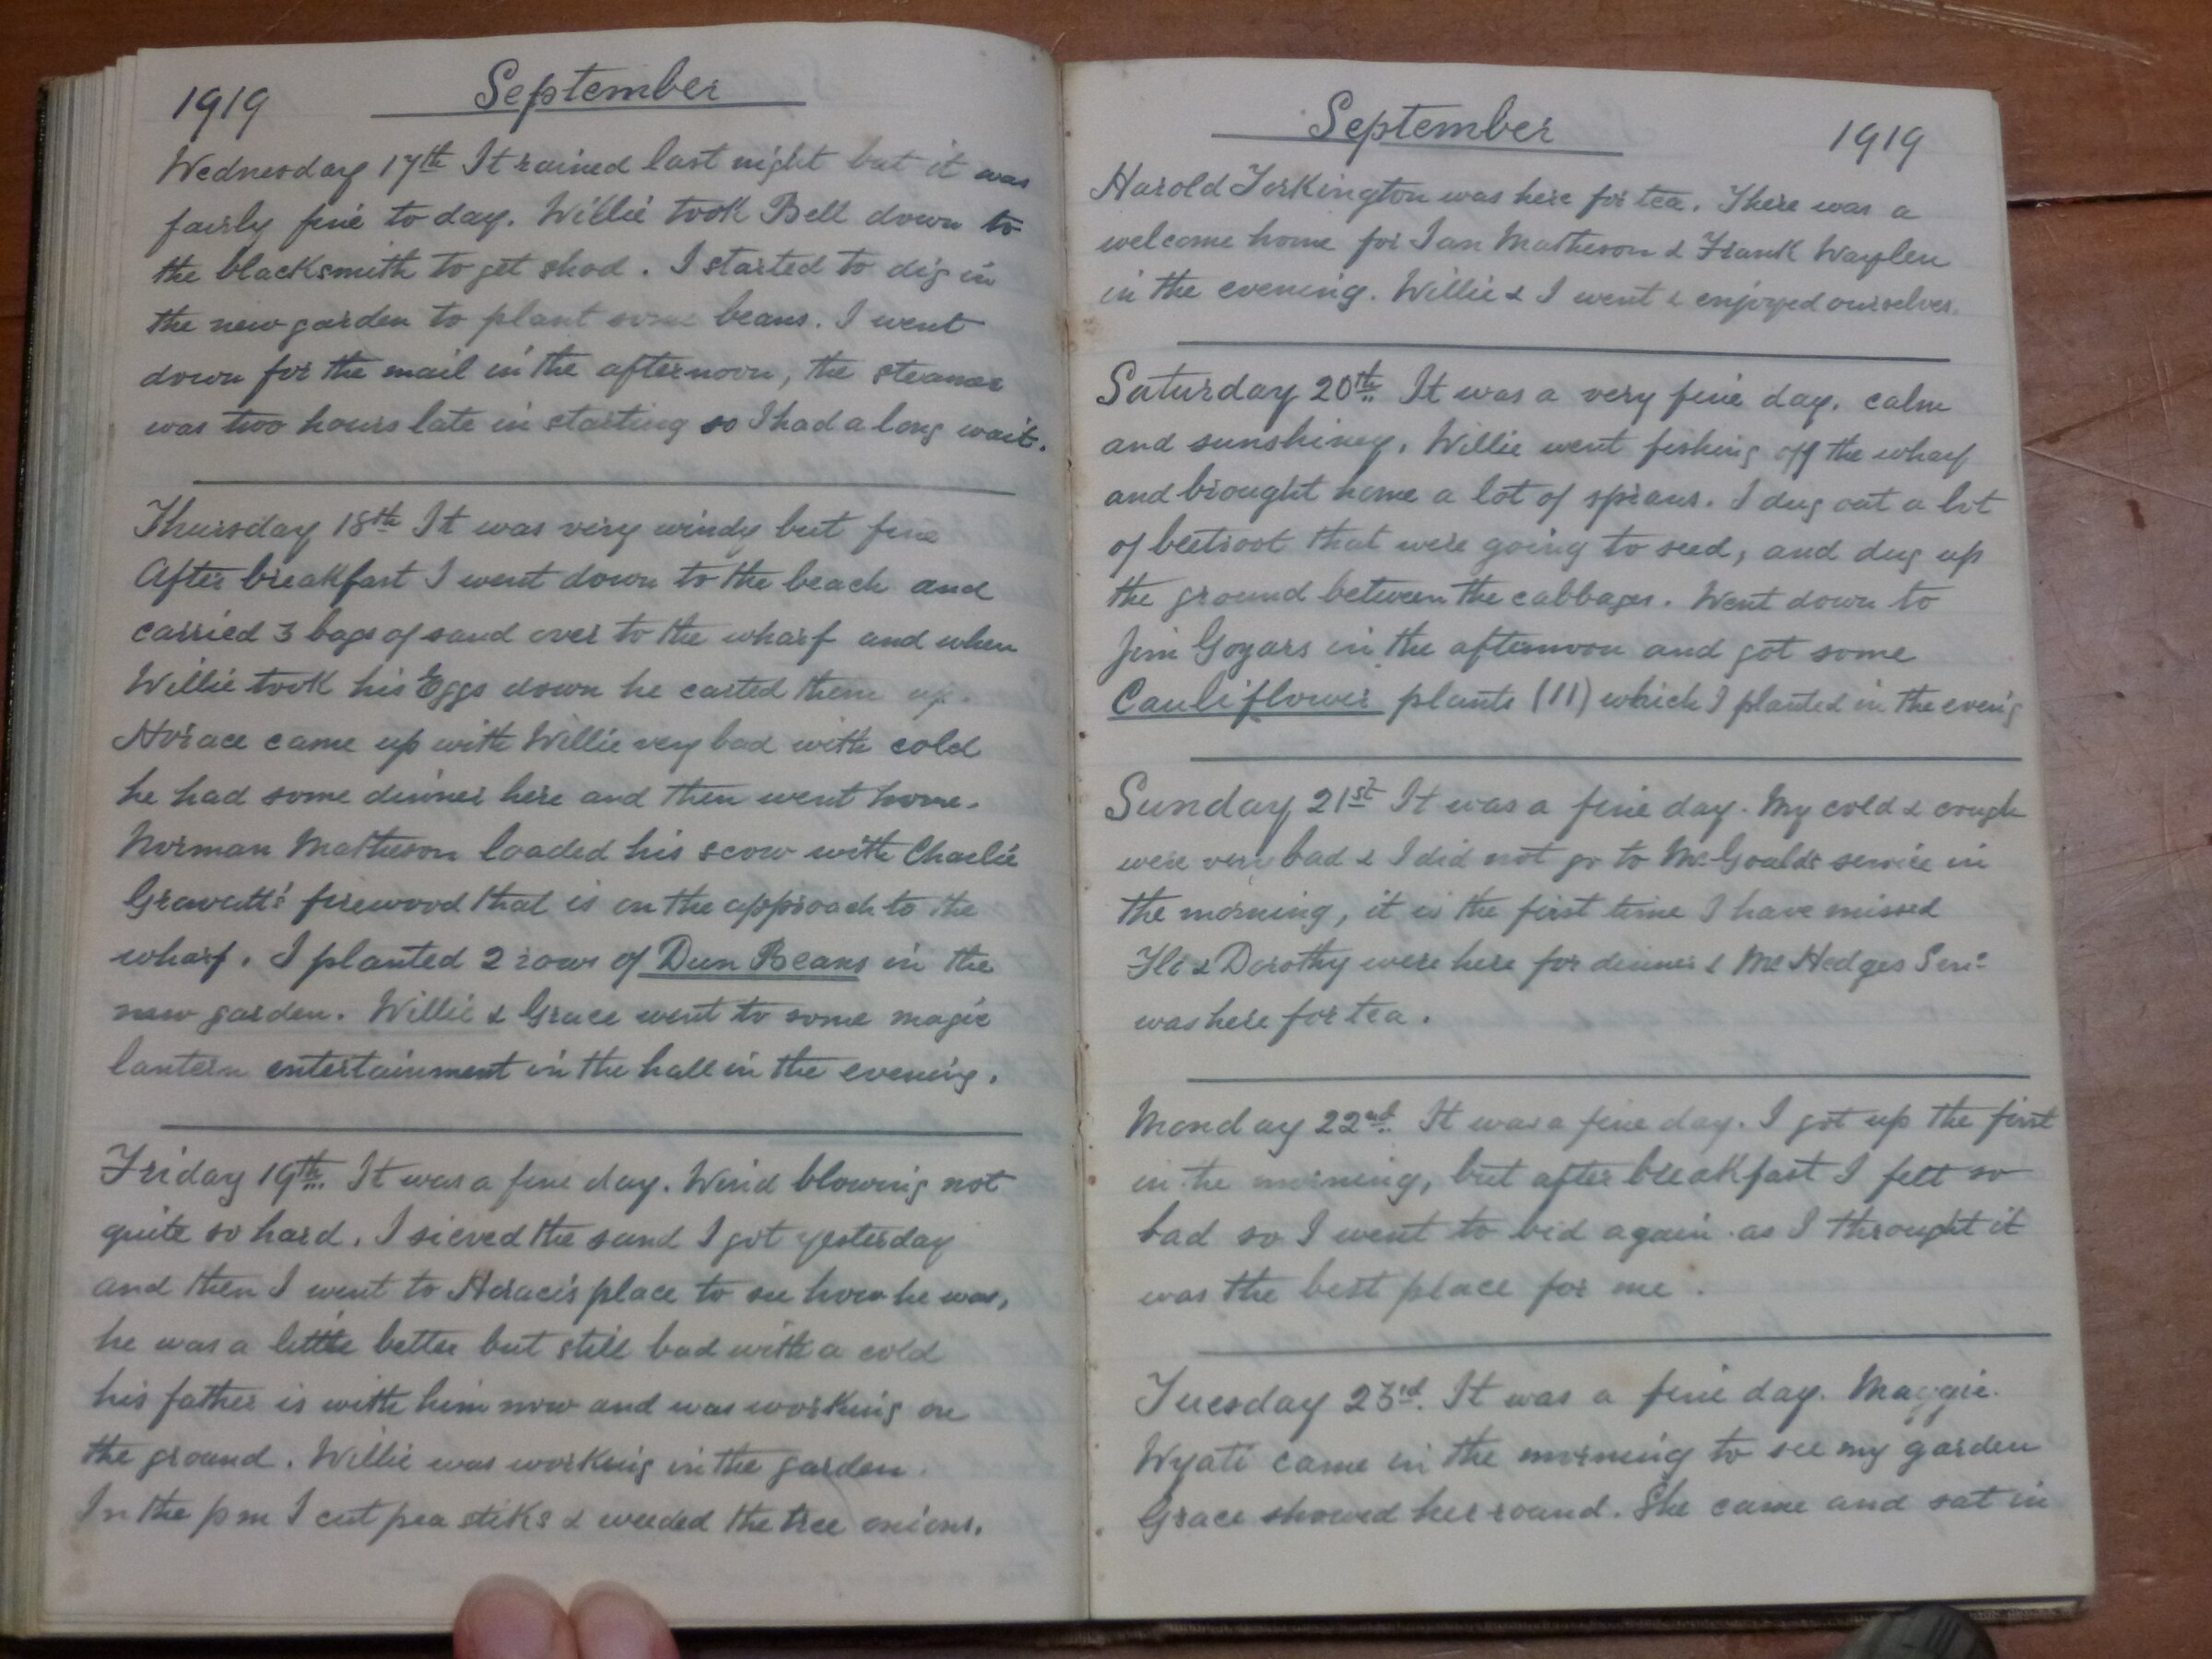 1919 September
Wednesday 17th It rained last night but it was
fairly fine to day. Willie took Bell down to
the blacksmith to get shod. I started to dig in
the new garden to plant some beans. I went
down for the mail in the afternoon, the steamer
was two hours late in starting so I had a long wait.
Thursday 18th It was very windy but fine
After breakfast I went down to the beach and
carried 3 bags of sand over to the wharf and when
Willie took his Eggs down he carted them up.
Horace came up with Willie very bad with cold
he had some dinner here and then went home.
Norman Matheson loaded his scow with Charlie
Grawatt's firewood that is on the approach to the
wharf. I planted 2 rows of Dun Beans in the
new garden. Willie & Grace went to some magic
lantern entertainment in the hall in the evening.
Friday 19th. It was a fine day. Wind blowing not
quite so hard. I sieved the sand I got yesterday
and then I went to Horace's place to see how he was,
he was a little better but still bad with a cold
his father is with him now and was working on
the ground. Willie was working in the garden.
In the pm I cut pea stiks & weeded the tree onions.
September 1919
Harold Torkington was here for tea. There was a
welcome home for Ian Matheson & Frank Waylen
in the evening. Willie & I went & enjoyed ourselves.
Saturday 20th It was a very fine day. calm
and sunshiney. Willie went fishing off the wharf
and brought home a lot of sprans. I dug out a lot
of beetroot that were going to seed, and dug up
the ground between the cabbages. Went down to
Jim Goyars in the afternoon and got some
Cauliflower plants (11) which I planted in the evenig
Sunday 21st It was a fine day. My cold & cough
were very bad & I did not go to Mr Goulds service in
the morning, it is the first time I have missed
Flo & Dorothy were here for dinner & Mr Hedges Senr
was here for tea.
Monday 22nd. It was a fine day. I got up the first
in the morning, but after breakfast I felt so
bad so I went to bed again as I throught it
was the best place for me.
Tuesday 23rd. It was a fine day. Maggie
Wyatt came in the morning to see my garden
Grace showed her round. She came and sat in